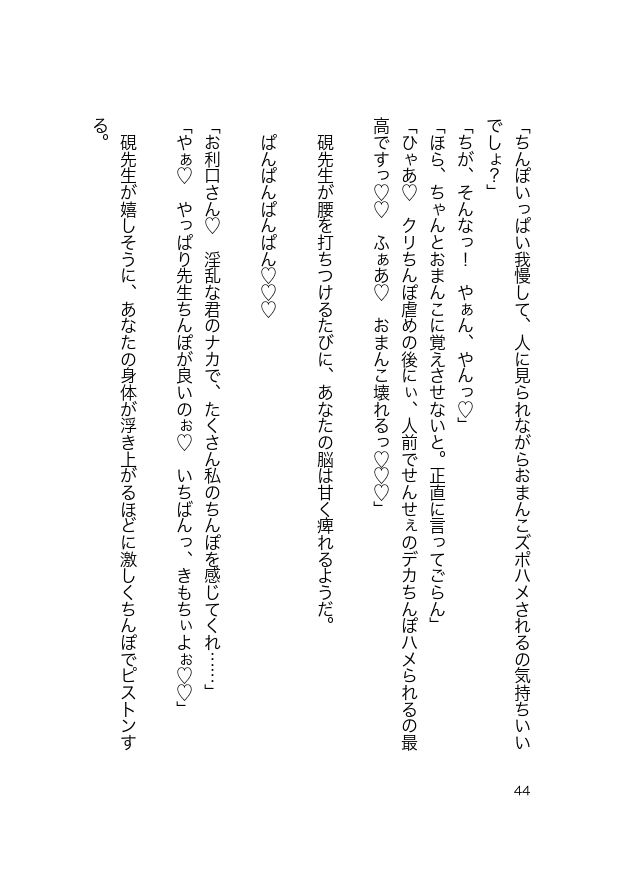 「ちんぽいっぱい我慢して、人に見られながらおまんこズポハメされるの気持ちいい
でしょ？」
「ちが、そんなっ！　やぁん、やんっ♡」
「ほら、ちゃんとおまんこに覚えさせないと。正直に言ってごらん」
「ひゃあ♡　クリちんぽ虐めの後にぃ、人前でせんせぇのデカちんぽハメられるの最
高ですっ♡♡　ふぁあ♡　おまんこ壊れるっ♡♡♡」
硯先生が腰を打ちつけるたびに、あなたの脳は甘く痺れるようだ。
ぱんぱんぱんぱん♡♡♡
「お利口さん♡　淫乱な君のナカで、たくさん私のちんぽを感じてくれ……」
「やぁ♡　やっぱり先生ちんぽが良いのぉ♡　いちばんっ、きもちぃよぉ♡♡」
硯先生が嬉しそうに、あなたの身体が浮き上がるほどに激しくちんぽでピストンす
る。
44